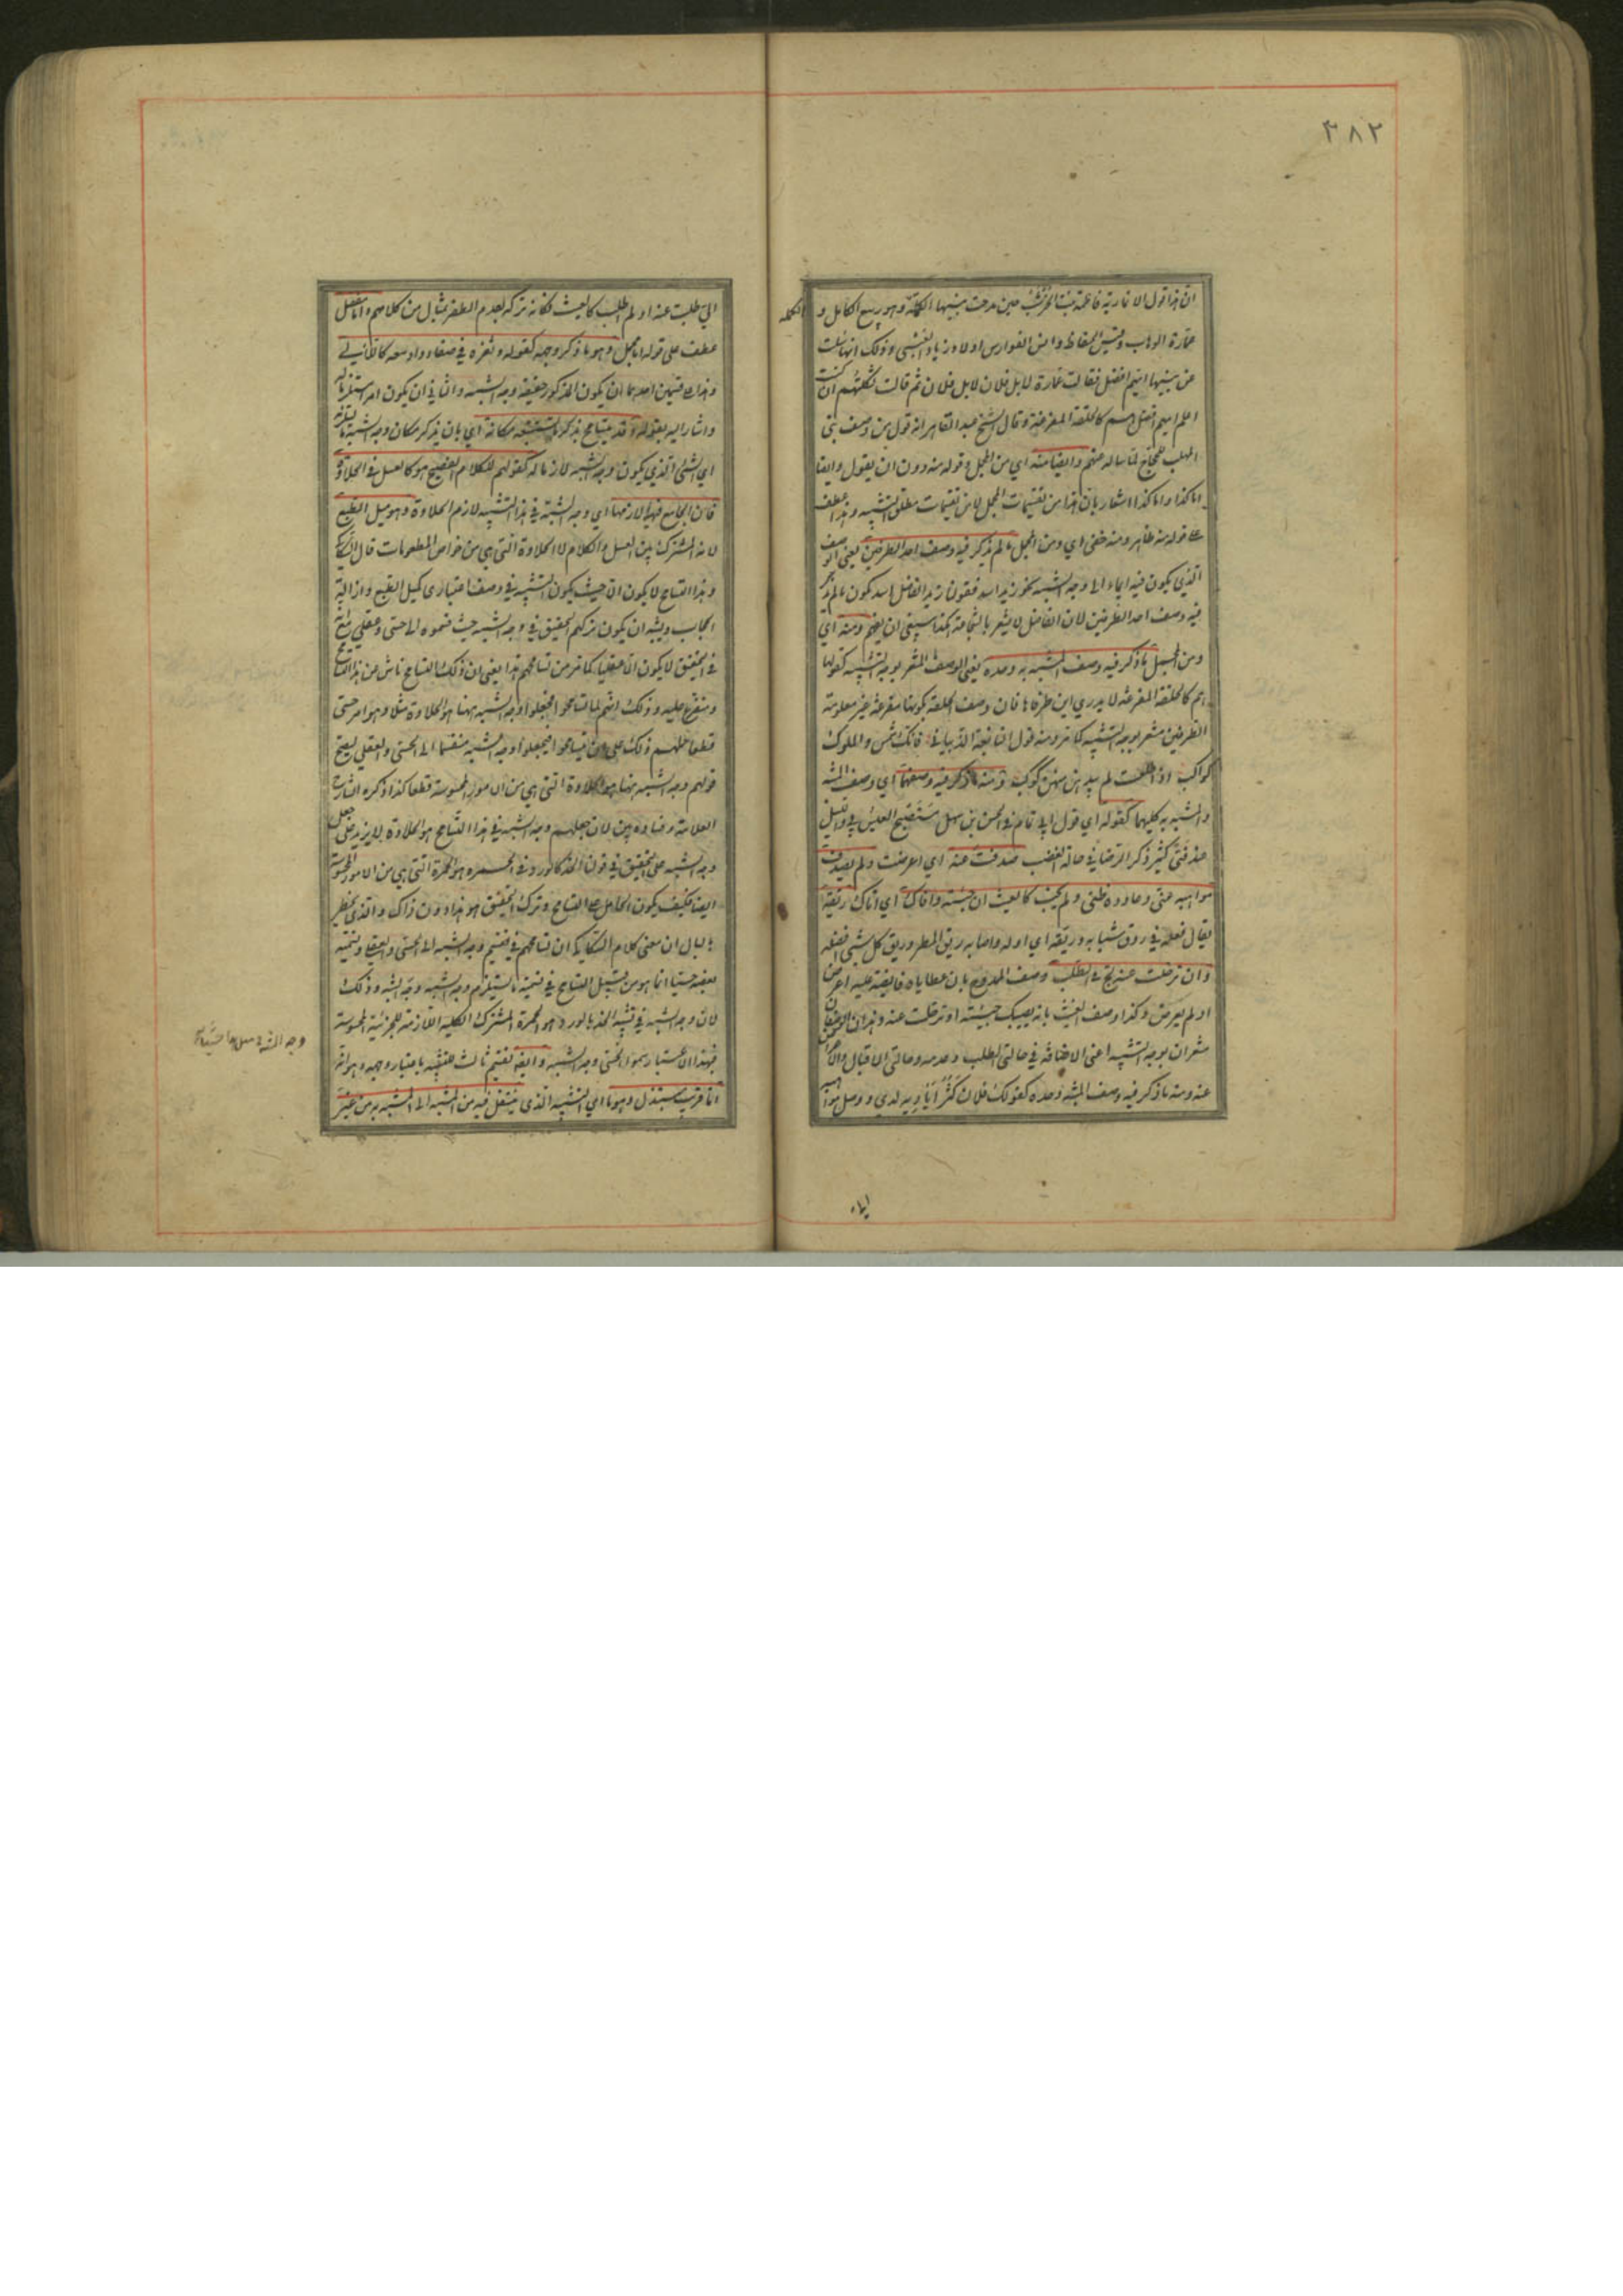 ٣٨٢
ان هذا قول الانمارية فاطمة بنت الخرشب حين مدحت بنيها الكملة وهو ربيع الكامل و
الكملة
عمارة الوهاب وقيس الحفاظ وانس الفوارس اولاد زياد العبسى وذلك انها سئلت
عن بنيها ايهم افضل فقالت عمارة لا بل فلان لا بل فلان ثم قالت ثكلتهم ان كنت
اعلم ايهم افضل هم كالحلقة المفرغة وقال الشيخ عبد القاهر انه قول من وصف بنى
المهلب للحجاج لما ساله عنهم وايضا منه اي من المجمل وقوله منه دون ان يقول وايضا
اما كذا واما كذا اشعار بان هذا من تقسيمات المجمل لا من تقسيمات مطلق التشبيه وهذا عطف
على قوله منه ظاهر ومنه خفى اي ومن المجمل ما لم يذكر فيه وصف احد الطرفين يعنى الوصف
الذي يكون فيه ايماء الى وجه الشبه نحو زيد اسد فقولنا زيد الفاضل اسد يكون مما لم يذكر
فيه وصف احد الطرفين لان الفاضل لا يشعر بالشجاعة هكذا ينبغي ان يفهم ومنه اي
ومن المجمل ما ذكر فيه وصف المشبه به وحده يعنى الوصف المشعر بوجه التشبيه كقولها
هم كالحلقة المفرغة لا يدري اين طرفاها فان وصف الحلقة بكونها مفرغة غير معلومة
الطرفين مشعر بوجه التشبيه كما مر ومنه قول النابغة الذبياني فانك شمس والملوك
كواكب اذا طلعت لم يبد منهن كوكب ومنه ما ذكر فيه وصفهما اي وصف المشبه
والمشبه به كليهما كقوله اي قول ابي تمام في الحسن بن سهل ستصبح العيس بي والليل
عند فتى كثير ذكر الرضا في حالة الغضب صدفت عنه اي اعرضت ولم يصدف
مواهبه عنى وعاوده ظنى ولم يخب كالغيث ان جئته وافاك اي اتاك ريقه
يقال فعله في روق شبابه وريقه اي اوله واصابه ريق المطر وريق كل شيئ افضله
وان ترحلت عنه لج في الطلب وصف الممدوح بان عطاياه فايضة عليه اعرض
او لم يعرض وكذا وصف الغيث بانه يصيبك جئته او ترحلت عنه وهذان الوصفان
مشعران بوجه التشبيه اعنى الافاضة في حالتى الطلب وعدمه وحالتى الاقبال والاعراض
عنه ومنه ما ذكر فيه وصف المشبه وحده كقولك فلان كثر اياديه لدي ووصل مواهبه
الي طلبت عنه او لم اطلب كالغيث فكانه تركه لعدم الظفر بمثال من كلامهم واما مفصل
عطف على قوله اما مجمل وهو ما ذكر وجهه كقوله وثغره في صفاء وادمعه كاللآلي
وهذا على قسمين احدهما ان يكون المذكور حقيقة وجه الشبه والثاني ان يكون امرا مستلزما له
واشار اليه بقوله وقد يتسامح بذكر ما يستتبعه مكانه اي بان يذكر مكان وجه الشبه ما يستلزمه
اي الشئ الذي يكون وجه الشبه لازما له كقولهم للكلام الفصيح هو كالعسل في الحلاوة
فان الجامع فيها لازمها اي وجه الشبه في هذا التشبيه لازم الحلاوة وهو ميل الطبع
لانه المشترك بين العسل والكلام لا الحلاوة التى هي من خواص المطعومات قال السكاكى
وهذا التسامح لا يكون الا حيث يكون التشبيه في وصف اعتبارى كميل الطبع وازالة
الحجاب ويشبه ان يكون تركهم التحقيق في وجه الشبه حيث قسموه الى حسى وعقلي مع انه
في التحقيق لا يكون الا عقليا كما مر من تسامحهم هذا يعنى ان ذلك التسامح ناش من هذا التسامح
ومتفرع عليه وذلك انهم لما تسامحوا فجعلوا وجه الشبه ههنا هو الحلاوة مثلا وهو امر حسى
قطعا حملهم ذلك على ان تسامحوا فيجعلوا وجه الشبه منقسما الى الحسى والعقلي ليصح
قولهم وجه الشبه ههنا هو الحلاوة التى هي من الامور المحسوسة قطعا كذا ذكره الشارح
العلامة وفساده بين لان جعلهم وجه الشبه في هذا التسامح هو الحلاوة لا يزيد على جعل
وجه الشبه على التحقيق في قولنا الخد كالورد في الحمرة هو الحمرة التى هي من الامور المحسوسة
ايضا فكيف يكون الحامل على التسامح وترك التحقيق هو هذا دون ذاك والذي يخطر
بالبال ان معنى كلام السكاكى ان تسامحهم في تقسيم وجه الشبه الى الحسى والعقلي وتسمية
بعضه حسيا انما هو من قبيل التسامح في تسمية ما يستلزم وجه الشبه وجه الشبه وذلك
لان وجه الشبه في تشبيه الخد بالورد هو الحمرة المشتركة الكلية اللازمة للجزئية المحسوسة
فبهذا الاعتبار سموا الحسى وجه الشبه وايضا تقسيم ثالث للتشبيه باعتبار وجهه وهو انه
اما قريب مبتذل وهو ما اي التشبيه الذي ينتقل فيه من المشبه الى المشبه به من غير